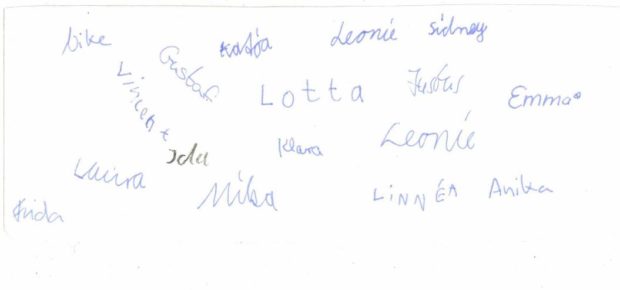 Katja
Leonie
Sidney
Gustaf
Vincent
Lotta
Justus
Emma
Ida
Klara
Leonie
Laura
Mika
LINNÉA
Anika
Frida